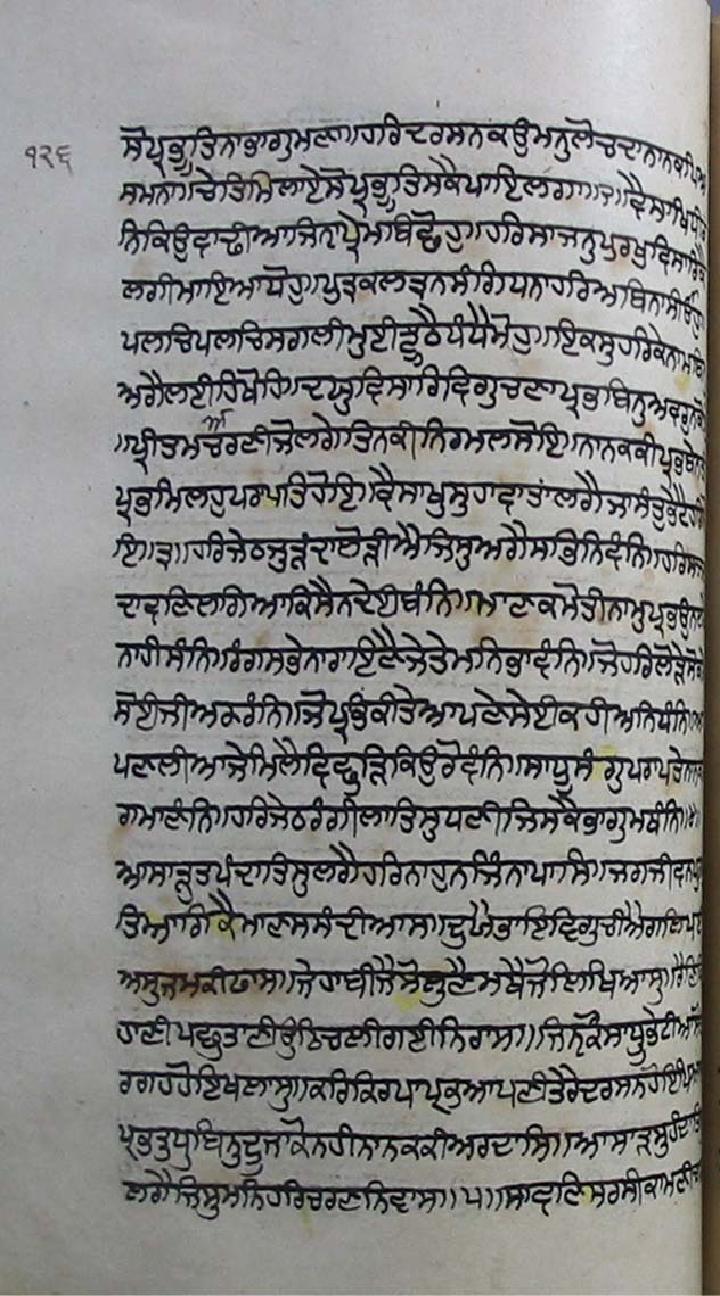 ੧੨੬
ਸੋਪ੍ਰਭੂਤਿਨਾਭਾਗੁਮਣਾ॥ਹਰਿਦਰਸਨਕਉਮਨੁਲੋਚਦਾਨਾਨਕ
ਸਮਨਾ॥ਚੇਤਿਮਿਲਾਏਸੋਪ੍ਰਭੂਤਿਸਕੈਪਾਇਲਗਾ॥੨॥ਵੈਸਾਖਿ
ਨਿਕਿਉਵਾਢੀਆਜਿਨਾਪ੍ਰੇਮਬਿਛੋਹੁ॥ਹਰਿਸਾਜਨੁਪੁਰਖੁਵਿਸਾਰਿ
ਲਗੀਮਾਇਆਧੋਹੁ॥ਪੁਤ੍ਰਕਲਤ੍ਰਨਸੰਗਿਧਨਾਹਰਿਅਬਿਨਾਸੀ
ਪਲਚਿਪਲਚਿਸਗਲੀਮੁਈਝੂਠੈਧੰਧੈਮੋਹੁ॥ਇਕਸੁਹਰਿਕੇਨਾਮ
ਅਗੈਲਈਹਿਖੋਹਿ॥ਦਯੁਵਿਸਾਰਿਵਿਗੁਚਣਾਪ੍ਰਭਬਿਨੁਅਵਰੁਨ
॥ਪ੍ਰੀਤਮਚਰਣੀਜੋਲਗੇਤਿਨਕੀਨਿਰਮਲਸੋਇ॥ਨਾਨਕਕੀਪ੍ਰਭ
ਪ੍ਰਭਮਿਲਹੁਪਰਾਪਤਿਹੋਇ॥ਵੈਸਾਖੁਸੁਹਾਵਾਤਾਂਲਗੈਜਾਸੰਤੁਭੇਟੈ
ਇ॥੩॥ਹਰਿਜੇਠਜੁੜੰਦਾਲੋੜੀਐਜਿਸੁਅਗੈਸਭਿਨਿਵੰਨਿ॥ਹਰਿ
ਦਾਵਣਿਲਗਿਆਕਿਸੈਨਦੇਈਬੰਨਿ॥ਮਾਣਕਮੋਤੀਨਾਮੁਪ੍ਰਭ
ਨਾਹੀਸੰਨਿ॥ਰੰਗਸਭੇਨਾਰਾਇਣੈਜੇਤੇਮਨਿਭਾਵੰਨਿ॥ਜੋਹਰਿਲੋੜੇ
ਸੋਈਜੀਅਕਰੰਨਿ॥ਜੋਪ੍ਰਭਿਕੀਤੇਆਪਣੇਸੇਈਕਹੀਅਨਿਧੰਨਿ॥
ਪਣਲੀਆਜੇਮਿਲੈਵਿਛੁੜਿਕਿਉਰੋਵੰਨਿ॥ਸਾਧੂਸੰਗੁਪਰਾਪਤੇ
ਗਮਾਣੰਨਿ॥ਹਰਿਜੇਠਰੰਗੀਲਾਤਿਸੁਧਣੀਜਿਸਕੈਭਾਗੁਮਥੰਨਿ॥੪॥
ਆਸਾੜੁਤਪੰਦਾਤਿਸੁਲਗੈਹਰਿਨਾਹੁਨਜਿੰਨਾਪਾਸਿ॥ਜਗਜੀਵਨ
ਤਿਆਗਿਕੈਮਾਣਸਸੰਦੀਆਸ॥ਦੁਯੈਭਾਇਵਿਗੁਚੀਐਗਲਿ
ਅਸੁਜਮਕੀਫਾਸ॥ਜੇਹਾਬੀਜੈਸੋਲੁਣੈਮਥੈਜੋਲਿਖਿਆਸੁ॥ਰੈਣਿ
ਹਾਣੀਪਛੁਤਾਣੀਉਠਿਚਲੀਗਈਨਿਰਾਸ॥ਜਿਨਕੌਸਾਧੂਭੇਟੀਐ
ਰਗਹਹੋਇਖਲਾਸੁ॥ਕਰਿਕਿਰਪਾਪ੍ਰਭਆਪਣੀਤੇਰੇਦਰਸਨਹੋਇਪਿ
ਪ੍ਰਭਤੁਧੁਬਿਨੁਦੂਜਾਕੋਨਹੀਨਾਨਕਕੀਅਰਦਾਸਿ॥ਆਸਾੜਸੁਹੰਦਾ
ਲਗੈਜਿਸੁਮਨਿਹਰਿਚਰਣਨਿਵਾਸ॥੫॥ਸਾਵਣਿਸਰਸੀਕਾਮਣੀ